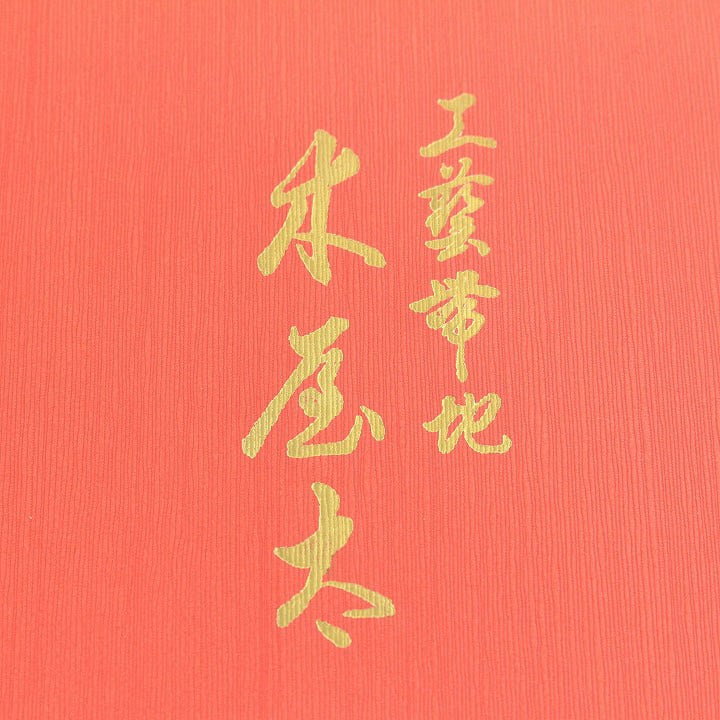 工藝帯地
木屋太